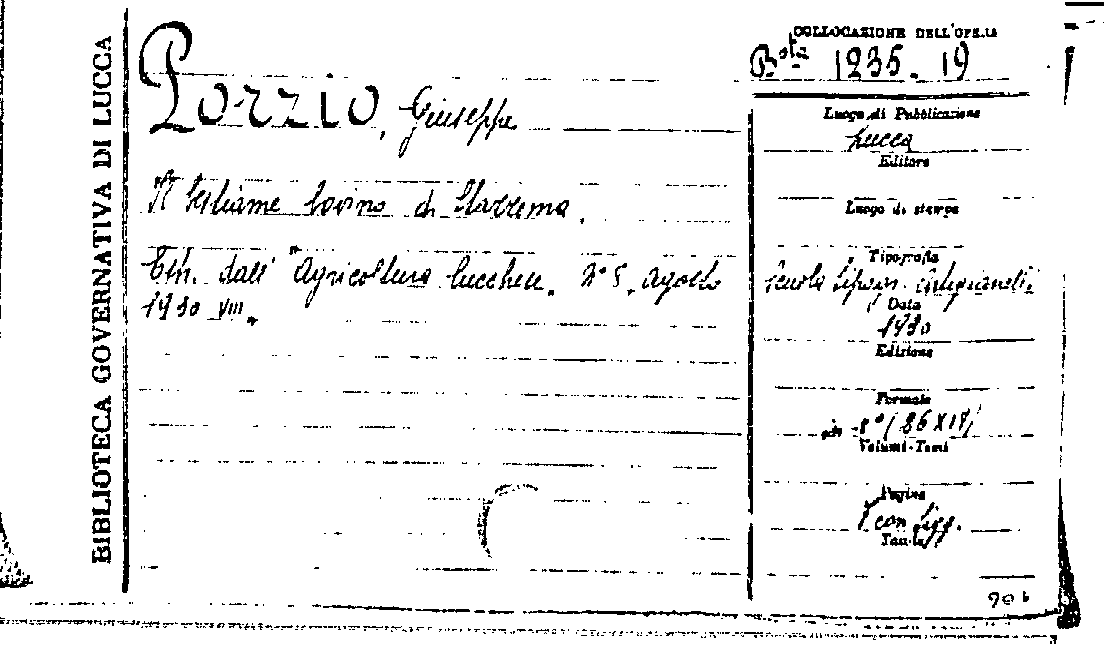 BIBLIOTECA GOVERNATIVA DI LUCCA
Porzio, Giuseppe
Il bestiame bovino di Maremma.
Estr. dall' "Agricoltura lucchese". N° 8. Agosto
1930 VIII.
COLLOCAZIONE DELL'OPERA
Bsta 1235. 19
Luogo di Pubblicazione
Lucca
Editore
Luogo di stampa
Tipografia
Scuola Tipogr. Artigianelli
Data
1930
Edizione
Formato
in -8° (26 X 17)
Volumi-Tomi
Pagine
con figg.
Tavole